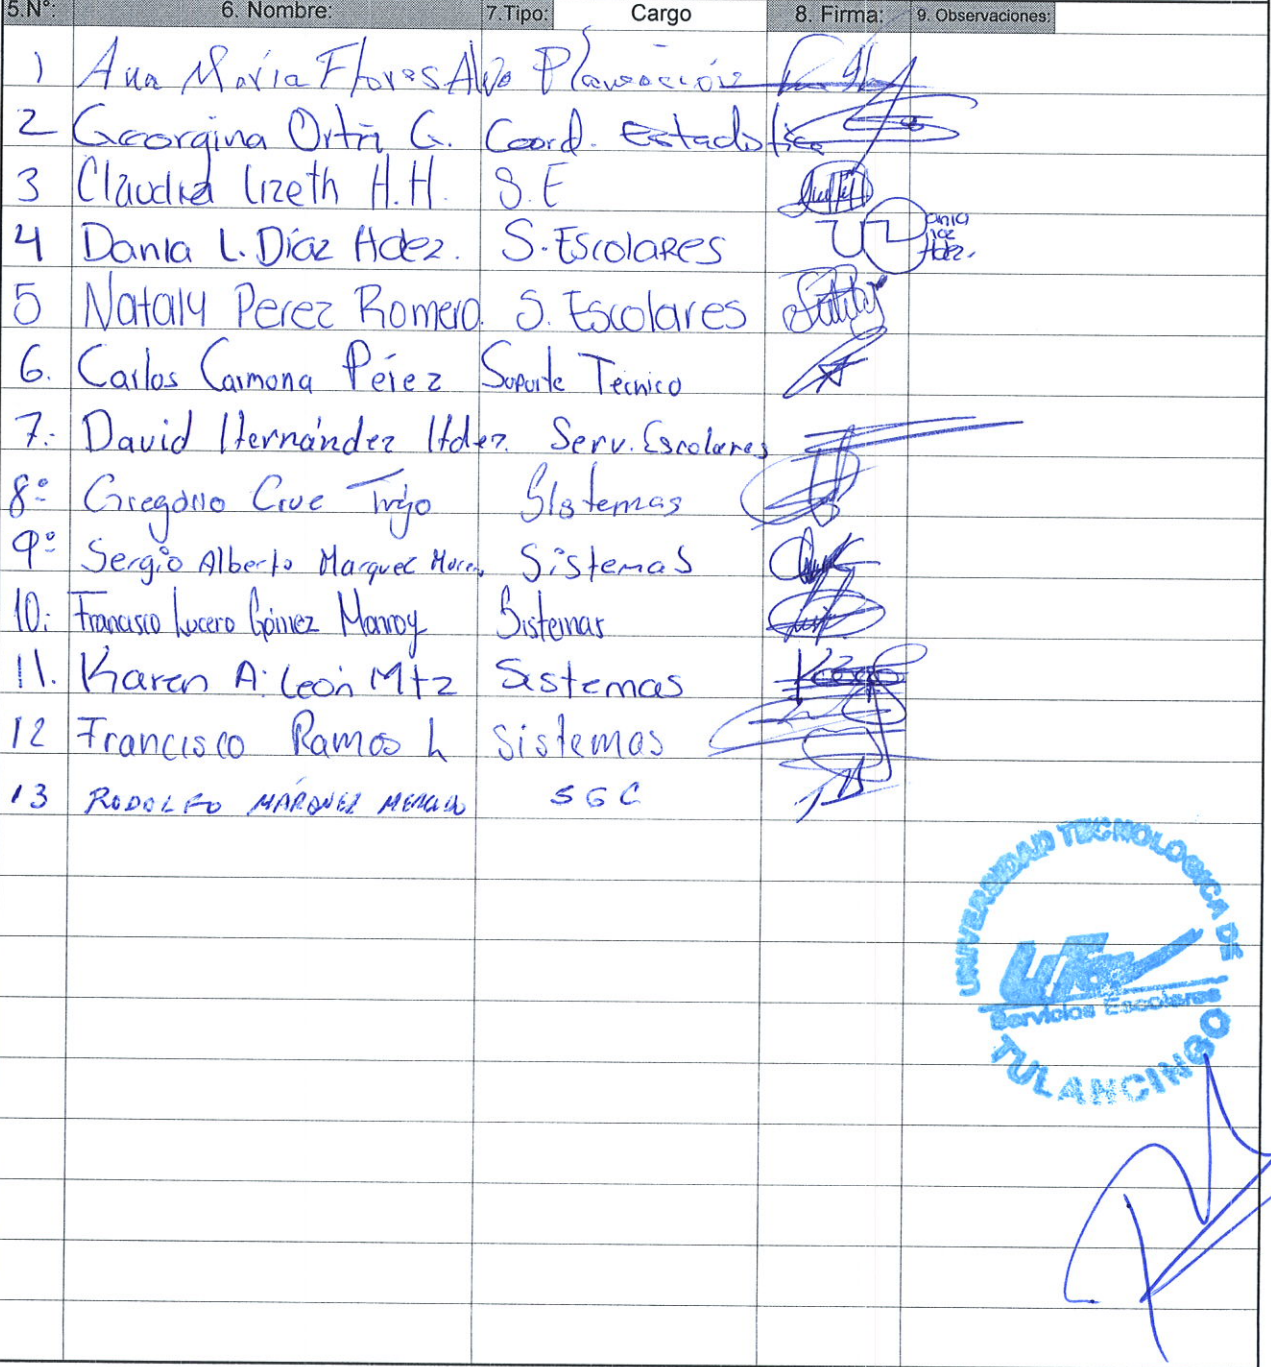 5.N°: 6. Nombre: 7.Tipo: Cargo 8. Firma: 9. Observaciones:
1 Ana María Flores Planeación
2 Georgina Ortiz G. Coord. Estadística
3 Claudia Lizeth H.H. S.E
4 Dania L. Díaz Hdez. S. Escolares
5 Nataly Perez Romero. S. Escolares
6. Carlos Carmona Pérez Soporte Técnico
7.- David Hernández Hdez. Serv. Escolares
8º Gregorio Cruz Trejo Sistemas
9º Sergio Alberto Marquez Sistemas
10: Francisco Lucero Gómez Monroy Sistemas
11. Karen A. León Mtz Sistemas
12 Francisco Ramos L Sistemas
13 RODOLFO MÁRQUEZ SGC
UNIVERSIDAD TECNOLOGICA DE
Servicios Escolares
TULANCINGO